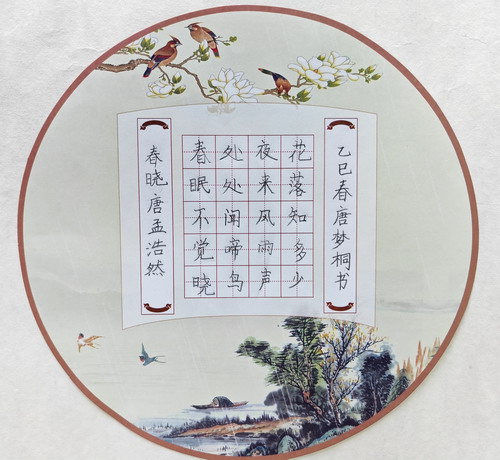 春晓唐孟浩然
春眠不觉晓
处处闻啼鸟
夜来风雨声
花落知多少
乙巳春唐梦桐书